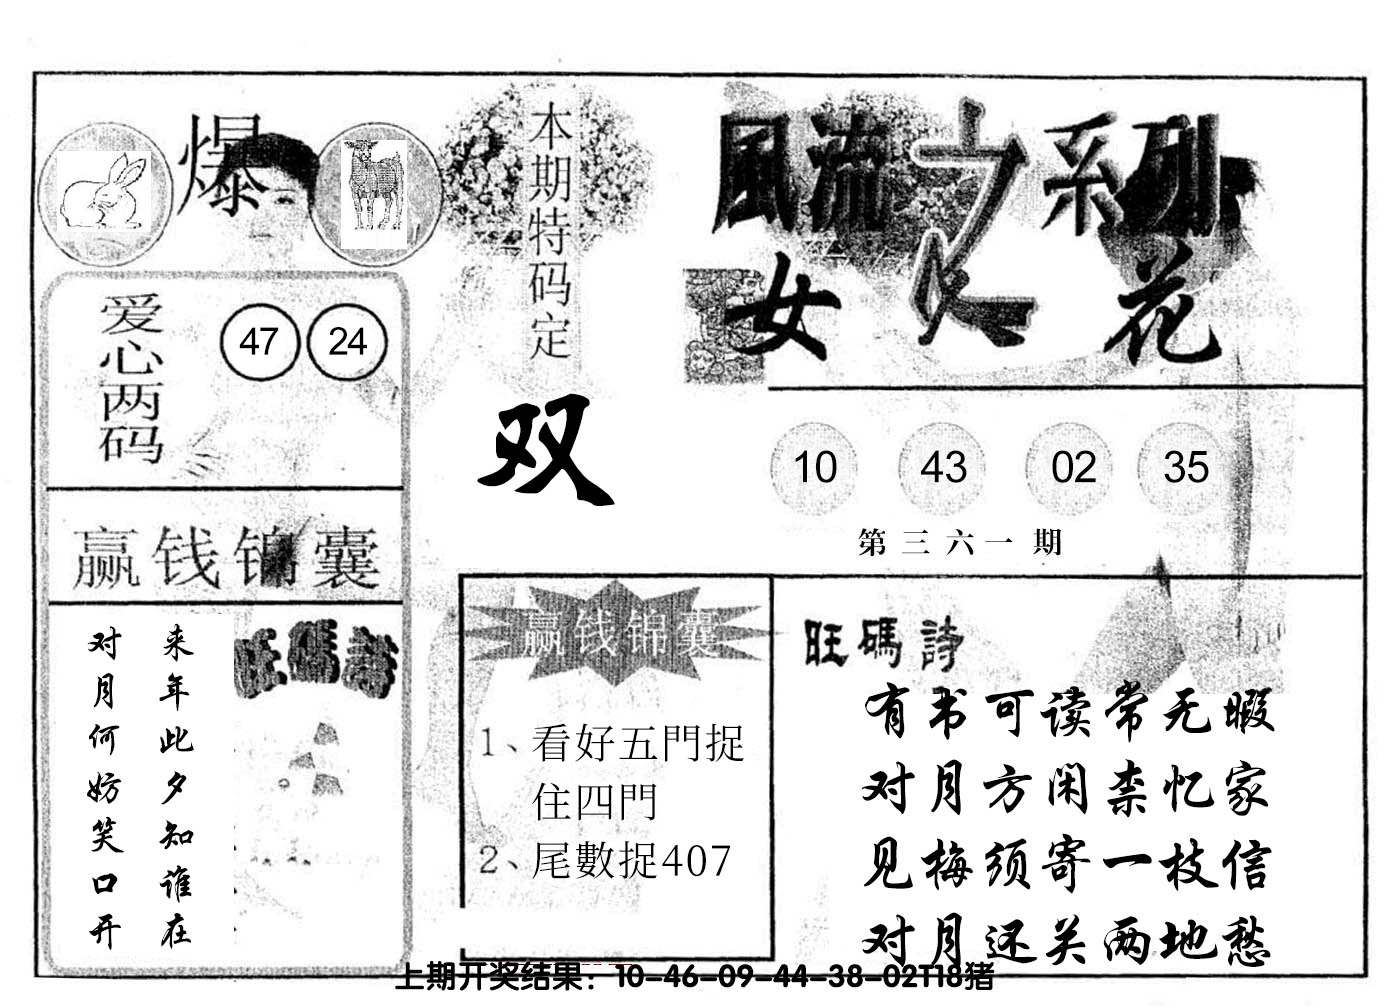 爆
本期特码定
双
風流之系列
女人花
爱心两码
47 24
10 43 02 35
第三六一期
赢钱锦囊
来年此夕知谁在
对月何妨笑口开
旺碼詩
赢钱锦囊
1、看好五門捉
住四門
2、尾數捉407
旺碼詩
有书可读常无暇
对月方闲柰忆家
见梅须寄一枝信
对月还关两地愁
上期开奖结果：10-46-09-44-38-02T18猪